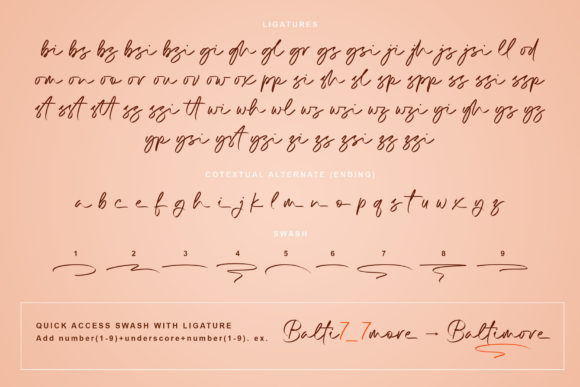 LIGATURES
bi bs bz bsi bzi gi gh gl gr gs gsi ji jh js jsi ll od
om on oo or ou ov ow ox pp si sh sl sp spp ss ssi ssp
st sst stt sz szi tt wi wh wl ws wsi wz wzi yi yh ys yz
yp ysi yst yzi zi zs zsi zz zzi
COTEXTUAL ALTERNATE (ENDING)
a b c e f g h i j k l m n o p q s t u w x y z
SWASH
1 2 3 4 5 6 7 8 9
QUICK ACCESS SWASH WITH LIGATURE
Add number(1-9)+underscore+number(1-9). ex.
Balti7_7more → Baltimore